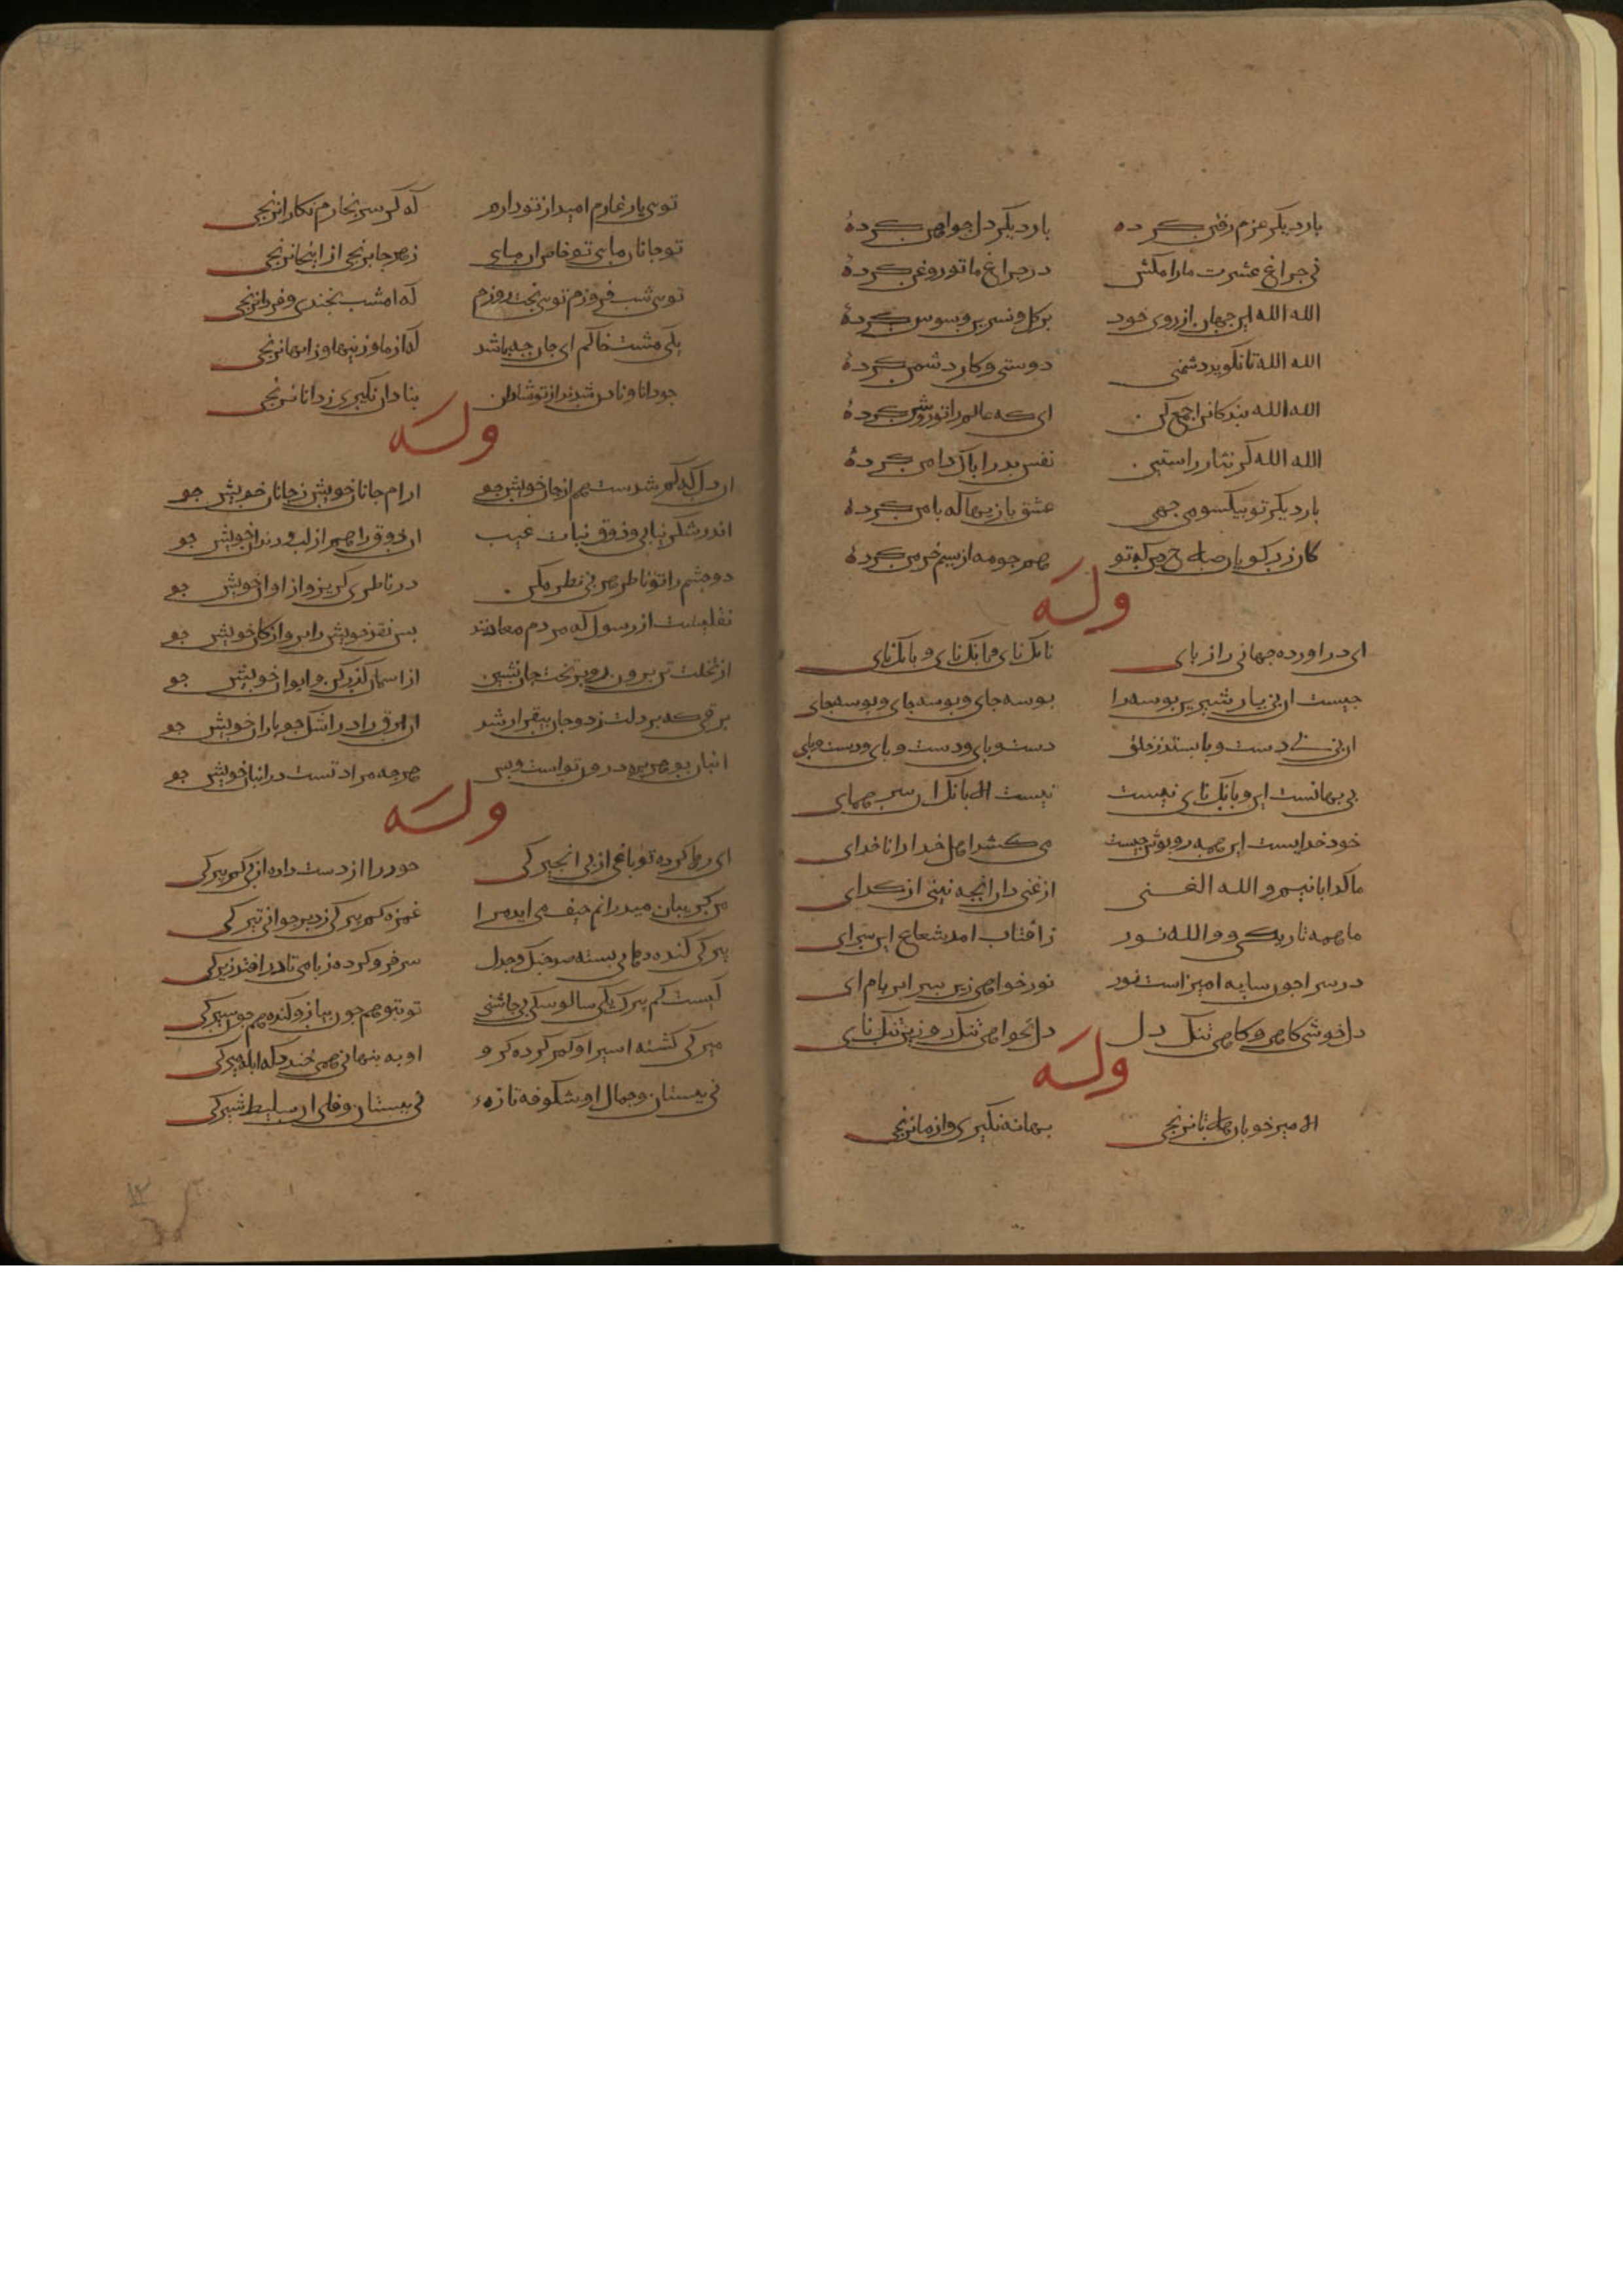 بار دیکر عزم رفتن کرده بار دیکر دل جو اهن کردهٔ
نی جراغ عشرت مارا مکش در جراغ ما تو روغن کردهٔ
الله الله این جهان از روی خود برکل و نسرین و سوسن کردهٔ
الله الله تا نکوید دشمنی دوستی و کار دشمن کردهٔ
الله الله بندکانرا جمع کن ای که عالم را تو روشن کردهٔ
الله الله کز نثار راستین نفس بد را باک دامن کردهٔ
بار دیکر تو بیکسو می جهی عشق بازیها که با من کردهٔ
کاز زرکوبان صلاح که تو همجو مه از سیم خرمن کردهٔ
وله
ای در اورده جهانی را زبای بانک نای و بانک نای و بانک نای
جیست ان نی یار شیرین بوسه را بوسه جای و بوسه جای و بوسه جای
ان نی بی دست و با بستد ز خلق دست و بای و دست و بای و دست و بای
نی بهانست این و بانک نای نیست نیست الا بانک ان بر همای
خود خدایست این همه روبوش جیست می کشد اهل خدا را تا خدای
ما کدایانیم و الله الغنی از غنی دان انجه بینی از کدای
ما همه تاریکی و والله نور ز افتاب امد شعاع این سرای
در سرا جون سایه امیز است نور نور خواهی زین سرا بر بام ای
دل خوشی کاهی و کاهی تنک دل دل نخواهی تنک رو زین تنک نای
وله
الا میر خوبان هلا تا نرنجی بهانه نکیری و از ما نرنجی
توی یار غارم امید از تو دارم که کر سر نخارم نکارا نرنجی
تو جانان مایی تو خاقان مایی ز هر جا برنجی از اینجا نرنجی
توی شب فروزم توی بخت روزم که امشب بخندی و فردا نرنجی
یکی مشت خاکم ای جان جه باشد که از ما و زینها و زانها نرنجی
جو دانا و نادان شدند از تو شادان بنادان نکیری ز دانا نرنجی
وله
ان دل که کم شدست هم از جان خویش جو ارام جان خویش ز جانان خویش جو
اندر شکر نیابی ذوق نبات غیب ان ذوق را هم از لب و دندان خویش جو
دو جشم را تو ناظر هر بی نظر مکن در ناظری کریز و از او ان خویش جو
نقلیست از رسول که مردم معادنند بس نقد خویش را برو از کان خویش جو
از تخت تن برون رو و بر تخت جان نشین از اسمان کذر کن و ایوان خویش جو
برقی که بر دلت زد و جان بیقرار شد ان برق را در اشک جو باران خویش جو
انبان بوهریره درون تو است و بس هر جه مراد تست در انبان خویش جو
وله
ای رها کرده تو باغی از بی انجیرکی حور را از دست داده از بی کم بیرکی
من کریبان میدرانم حیف می اید مرا غمزه کم بیرکی زد بر جوانی تیرکی
بیرکی کنده دهانی بسته صد جنک و جدل سر فرو کرده ز بامی تا در افتد زیرکی
کیست کم بیرک یکی سالوسکی بی جاشنی تو بتو همجون بیاز و کنده همجون سیرکی
میرکی کشته اسیر او کمر کرده کرو او به بنهانی همی خندد که ابله میرکی
نی بستان و جمال او شکوفه تازهٔ نی ببستان وفای ان سلیطه شیرکی